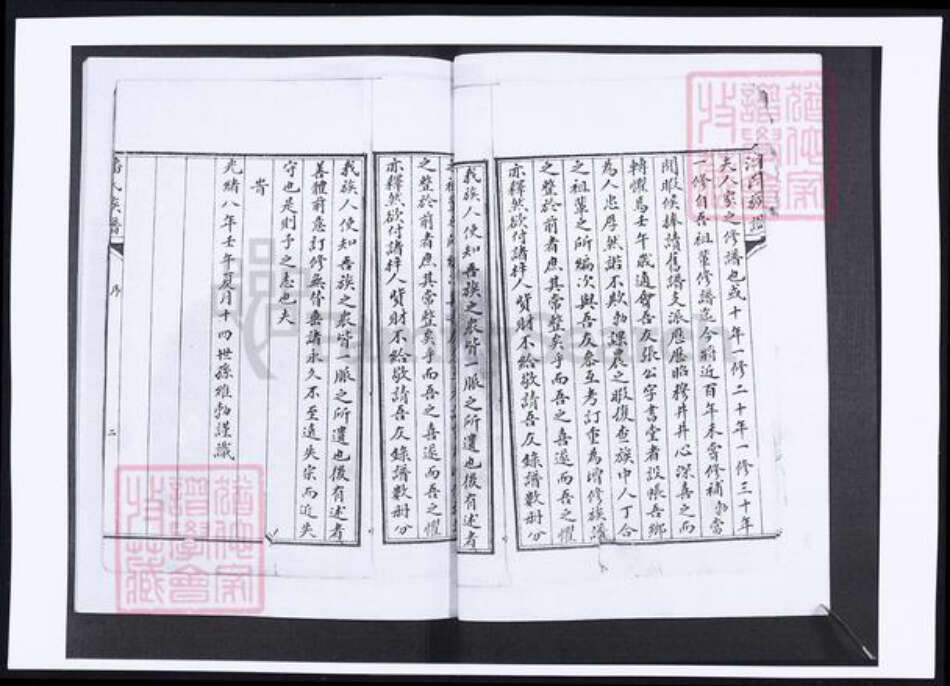 夫人家之修譜也或十年一修二十年一修三十年
一修自吾祖輩修譜迄今將近百年未嘗修補勃當
閒暇候捧讀舊譜支派歷歷昭穆井井心深善之而
轉懼焉壬午歲適會吾友張公字書堂者設帳吾鄉
為人忠厚然諾不欺勃課農之暇復查族中人丁合
之祖輩之所編次與吾友參互考訂重為增修族譜
之整於前者庶其常整矣乎而吾之喜遂而吾之懼
亦釋然欲付諸梓人貲財不給敬請吾友錄譜數冊分
我族人使知吾族之眾皆一脈之所遺也後有述者
之整於前者庶其常整矣乎而吾之喜遂而吾之懼
亦釋然欲付諸梓人貲財不給敬請吾友錄譜數冊分
我族人使知吾族之眾皆一脈之所遺也後有述者
善體前意訂修無替垂諸永久不至遠失宗而近失
守也是則予之志也夫
旹
光緒八年壬午夏月十四世孫維勃謹識
氏族譜
序
二